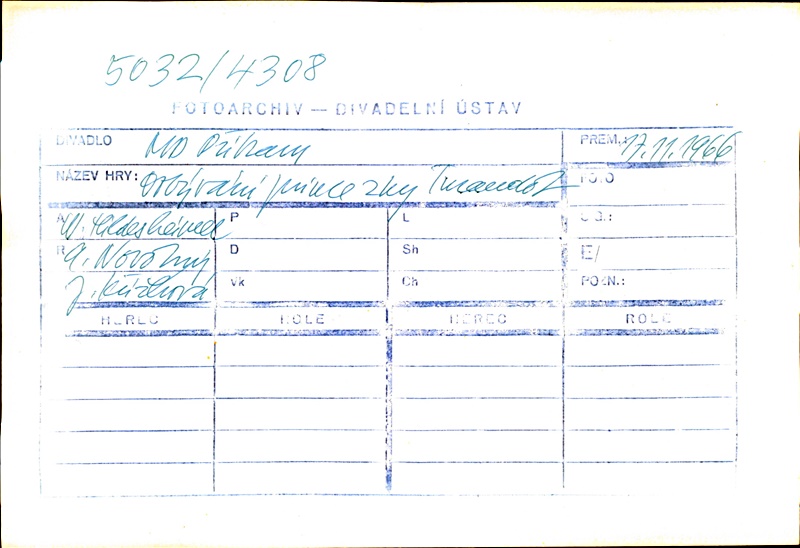 5032/4308
FOTOARCHIV — DIVADELNÍ ÚSTAV
DIVADLO MD Příbram PREM.: 17.11.1966
NÁZEV HRY: Dobývání princezny Turandot FOTO
A W. Hildesheimer P L
R A. Novotný D Sh E/
J. Vk Ch POZN.:
HEREC ROLE HEREC ROLE